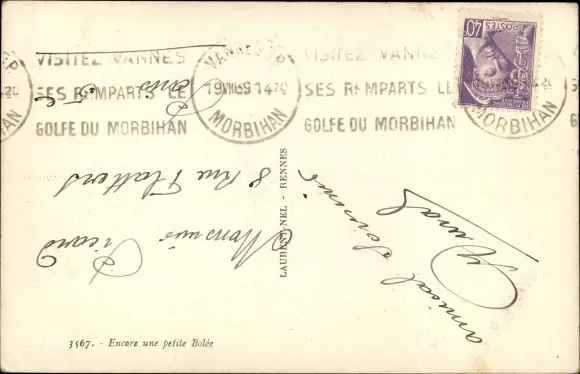 VISITEZ VANNES
SES REMPARTS LE
GOLFE DU MORBIHAN
VANNES
19 VIII 39 1420
MORBIHAN
VISITEZ VANNES
SES REMPARTS LE
GOLFE DU MORBIHAN
MORBIHAN
40
POSTES
Monsieur
Picard
8 Rue Flatters
Paris
5e
amical souvenir
LAURENT-NEL - RENNES
3567. - Encore une petite Bolée